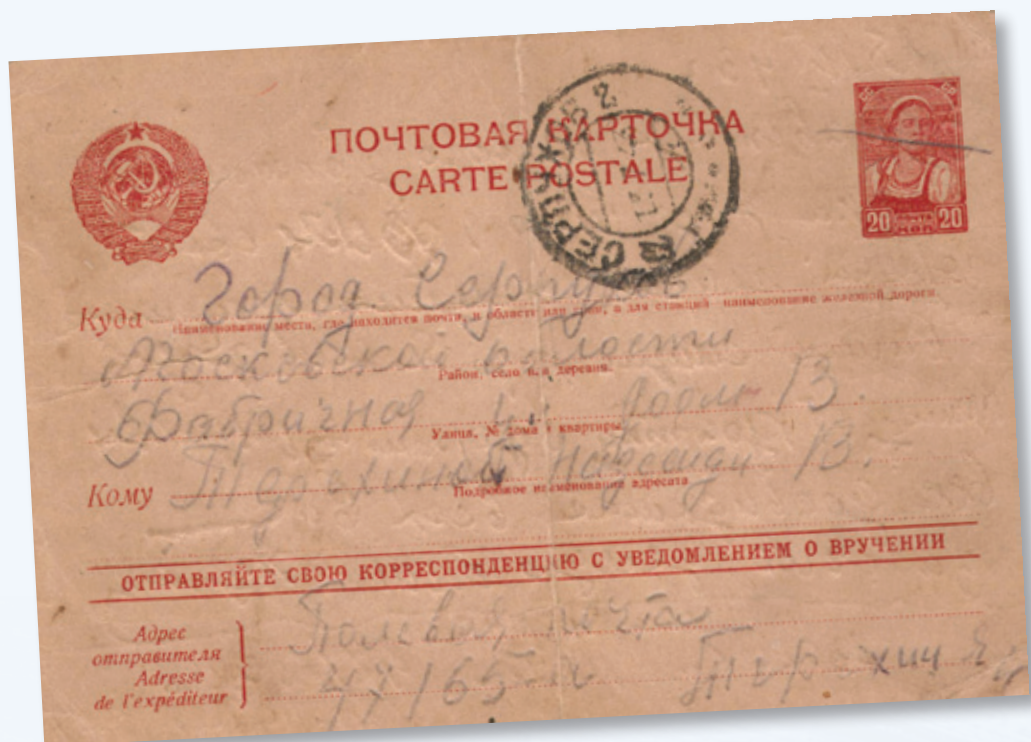 ПОЧТОВАЯ КАРТОЧКА
CARTE POSTALE
СЕРПУХОВ 2
20 ПОЧТА КОП 20
Куда Город Серпухов
Наименование места, где находится почта, и области или края, а для станций наименование железной дороги.
Московской области
Район, село или деревня.
Фабричная ул дом 13.
Улица, № дома и квартиры
Кому Терехиной В.
Подробное наименование адресата
ОТПРАВЛЯЙТЕ СВОЮ КОРРЕСПОНДЕНЦИЮ С УВЕДОМЛЕНИЕМ О ВРУЧЕНИИ
Адрес отправителя
Adresse de l'expéditeur
Полевая почта
Терехин